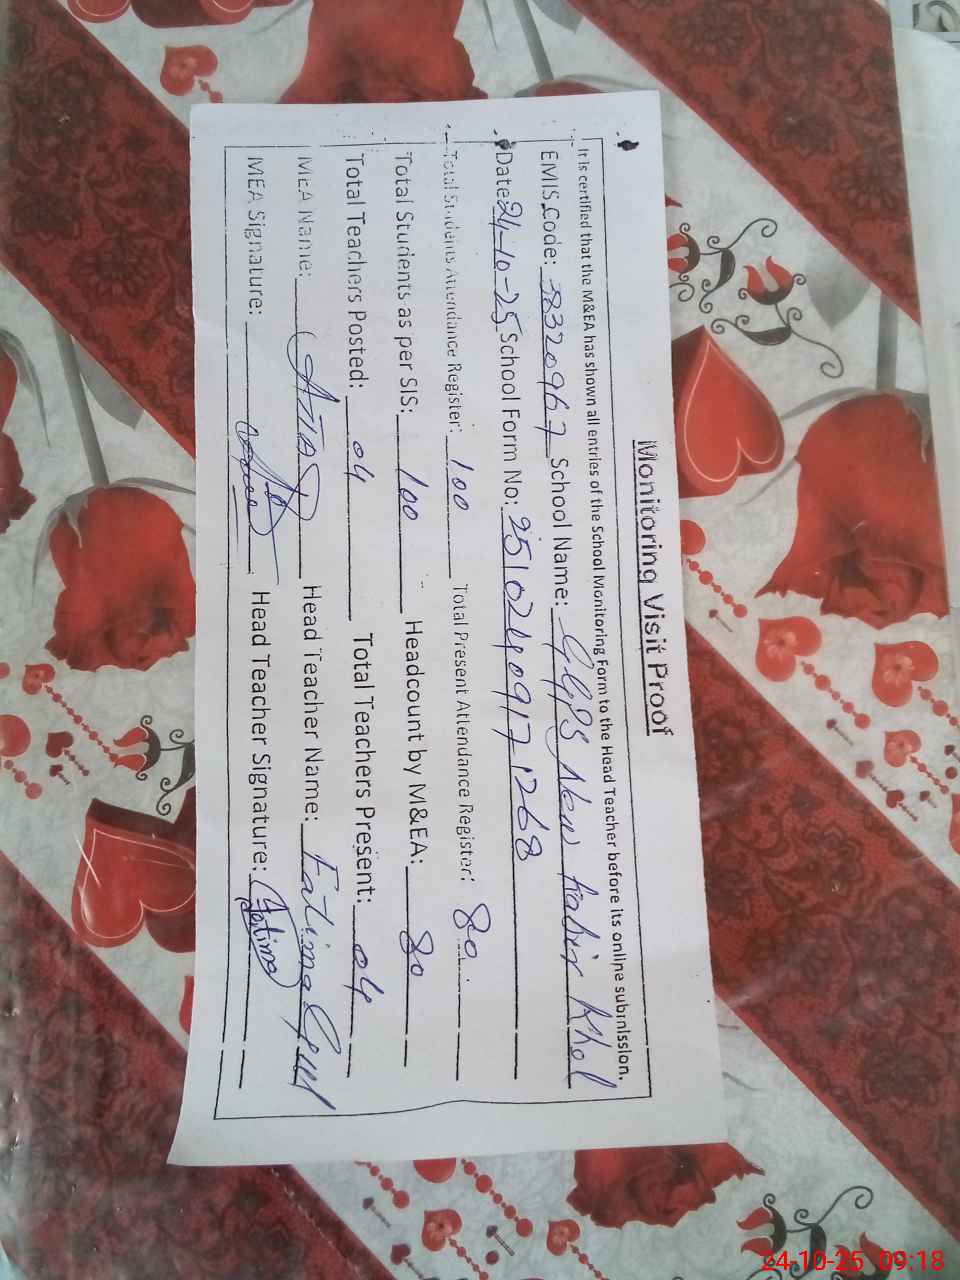 Monitoring Visit Proof
It is certified that the M&EA has shown all entries of the School Monitoring Form to the Head Teacher before its online submission.
EMIS Code: 38320967 School Name: GGPS New Kabir Khel
Date: 24-10-25 School Form No: 25102409171268
Total Students Attendance Register: 100 Total Present Attendance Register: 80
Total Students as per SIS: 100 Headcount by M&EA: 80
Total Teachers Posted: 04 Total Teachers Present: 04
MEA Name: Head Teacher Name: Fatima Gul
MEA Signature: Head Teacher Signature: Fatima
24-10-25 09:18